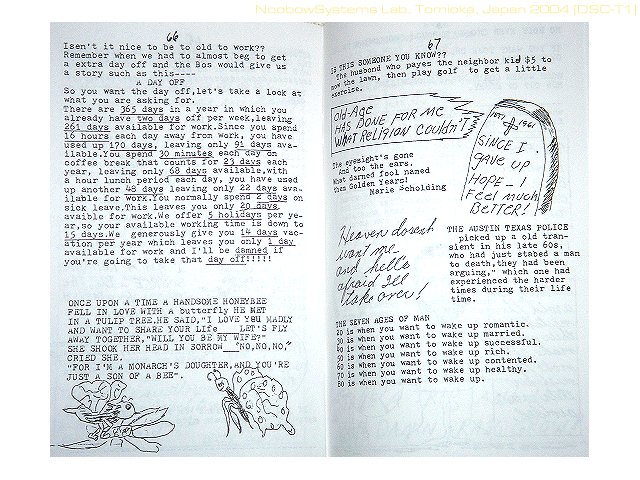 NoobowSystems Lab. Tomioka, Japan 2004 [DSC-T1]
66
Isen't it nice to be to old to work??
Remember when we had to almost beg to get
a extra day off and the Bos would give us
a story such as this----
A DAY OFF
So you want the day off,let's take a look at
what you are asking for.
There are 365 days in a year in which you
already have two days off per week,leaving
261 days available for work.Since you spend
16 hours each day away from work, you have
used up 170 days, leaving only 91 days ava-
ilable.You spend 30 minutes each day on
coffee break that counts for 23 days each
year, leaving only 68 days available,with
a hour lunch period each day, you have used
up another 48 days leaving only 22 days ava-
ilable for work.You normally spend 2 days on
sick leave.This leaves you only 20 days
avaible for work.We offer 5 holidays per ye-
ar,so your available working time is down to
15 days.We generously give you 14 days vac-
ation per year which leaves you only 1 day
available for work and I'll be damned if
you're going to take that day off!!!!!
ONCE UPON A TIME A HANDSOME HONEYBEE
FELL IN LOVE WITH A butterfly HE MET
IN A TULIP TREE,HE SAID,"I LOVE YOU MADLY
AND WANT TO SHARE YOUR Life LET'S FLY
AWAY TOGETHER,"WILL YOU BE MY WIFE?"
SHE SHOOK HER HEAD IN SORROW "NO,NO,"
CRIED SHE.
"FOR I'M A MONARCH'S DAUGHTER,AND YOU'RE
JUST A SON OF A BEE".
67
IS THIS SOMEONE YOU KNOW??
The husband who payes the neighbor kid $5 to
mow the lawn, then play golf to get a little
exercise.
Old-Age
HAS DONE FOR ME
WHAT RELIGION COULDN'T
The eyesight's gone
And too the ears.
What darned fool named
them Golden Years!
Marie Scholding
1961
SINCE I
GAVE UP
HOPE - I
Feel much
BETTER!
Heaven dosen't
want me
and hell's
afraid I'll
take over!
THE AUSTIN TEXAS POLICE
picked up a old tran-
sient in his late 60s,
who had just stabed a man
to death,they had been
arguing," which one had
experienced the harder
times during their life
time.
THE SEVEN AGES OF MAN
20 is when you want to wake up romantic.
30 is when you want to wake up married.
40 is when you want to wake up successful.
50 is when you want to wake up rich.
60 is when you want to wake up contented.
70 is when you want to wake up healthy.
80 is when you want to wake up.